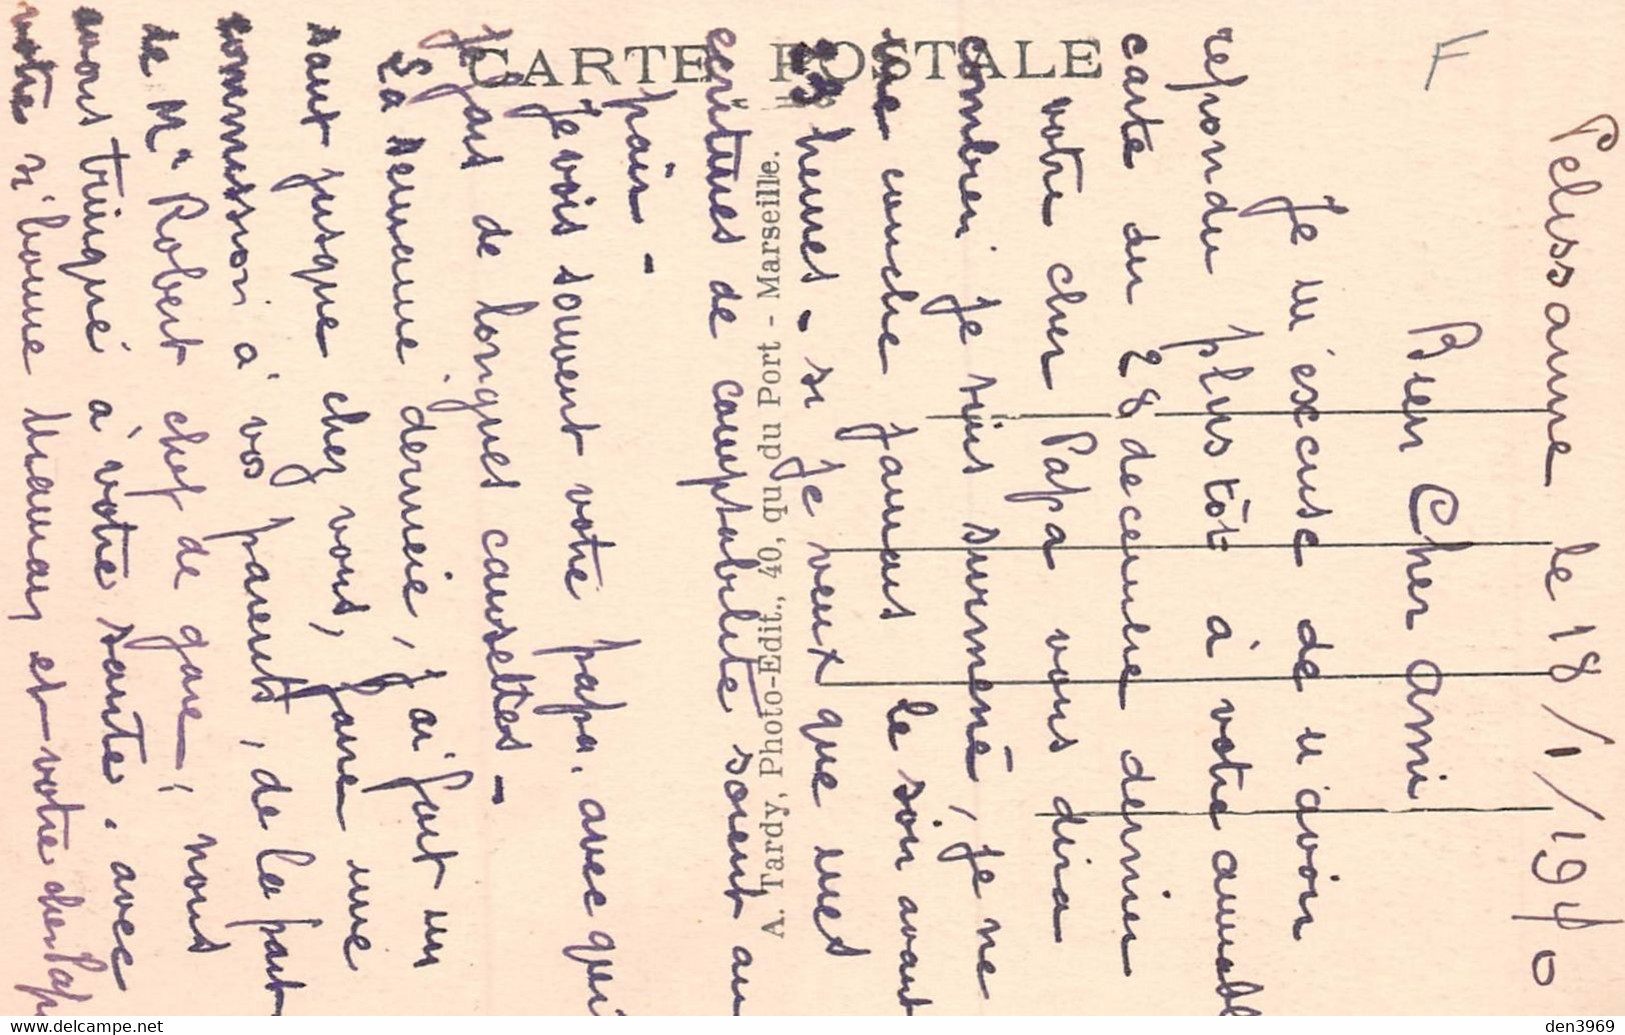 Pelissanne le 18/1/1940
Bien Cher ami
Je m'excuse de n'avoir
repondu plus tôt à votre aimabl
carte du 28 decembre dernier
votre cher Papa vous dira
combien je suis surmené, je ne
me couche jamais le soir avant
heures - si je veux que mes
ecritures de comptabilité soient au
pair -
Je vois souvent votre papa. avec qui
je fais de longues causettes -
La semaine dernière, j'ai fait un
saut jusque chez vous, faire une
commission à vos parents, de la part
de Mr Robert chef de gare, nous
avons trinqué à votre santé, avec
votre si bonne Maman et votre cher Pap
CARTE POSTALE
A. Tardy, Photo-Edit., 40, qu du Port - Marseille.
F
den3969